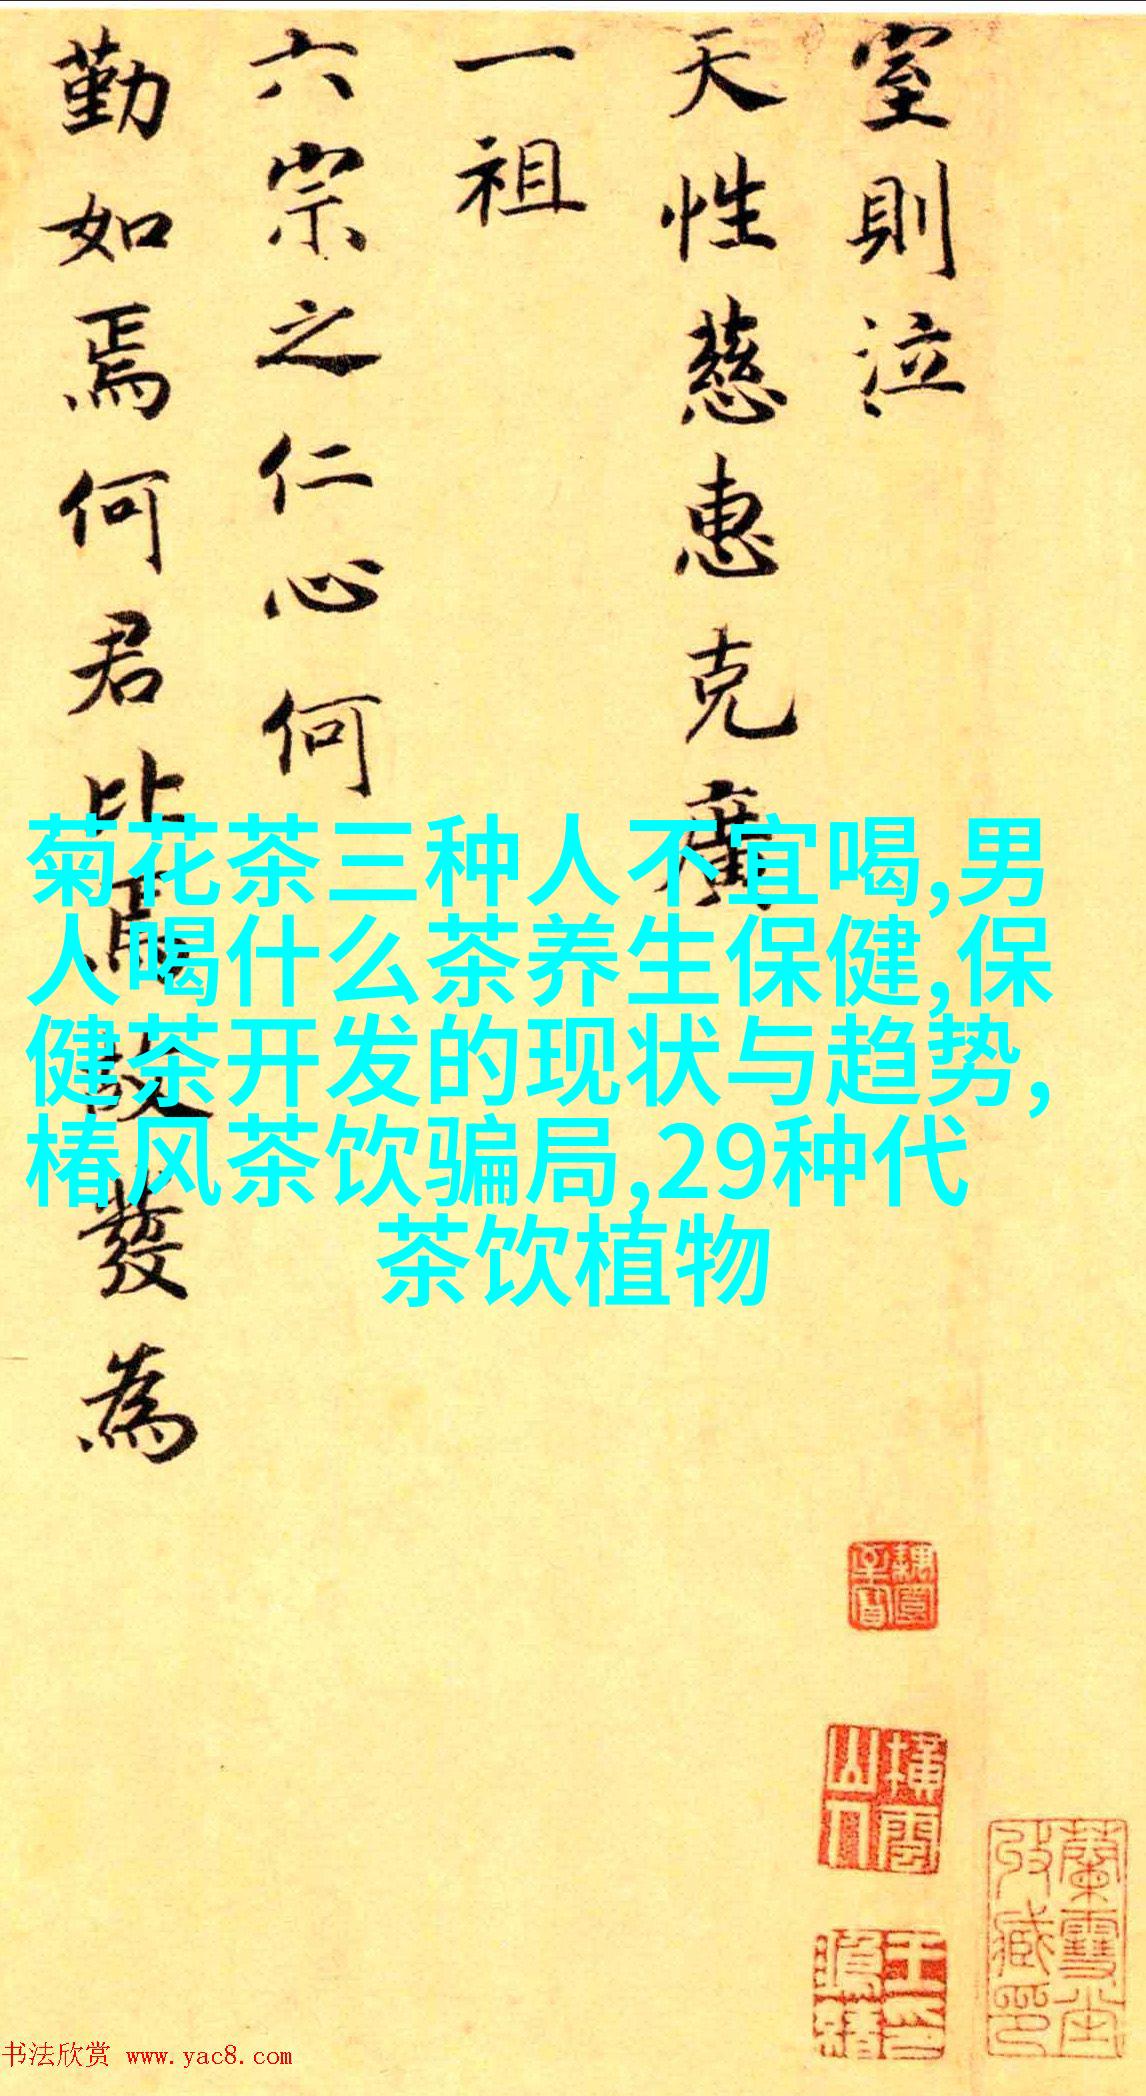 室則泣
天性慈惠克廣
一祖
六宗之仁心何
勤如焉何君比屬故發為
菊花茶三种人不宜喝,男
人喝什么茶养生保健,保
健茶开发的现状与趋势,
椿风茶饮骗局,29种代
茶饮植物
书法欣赏 www.yac8.com